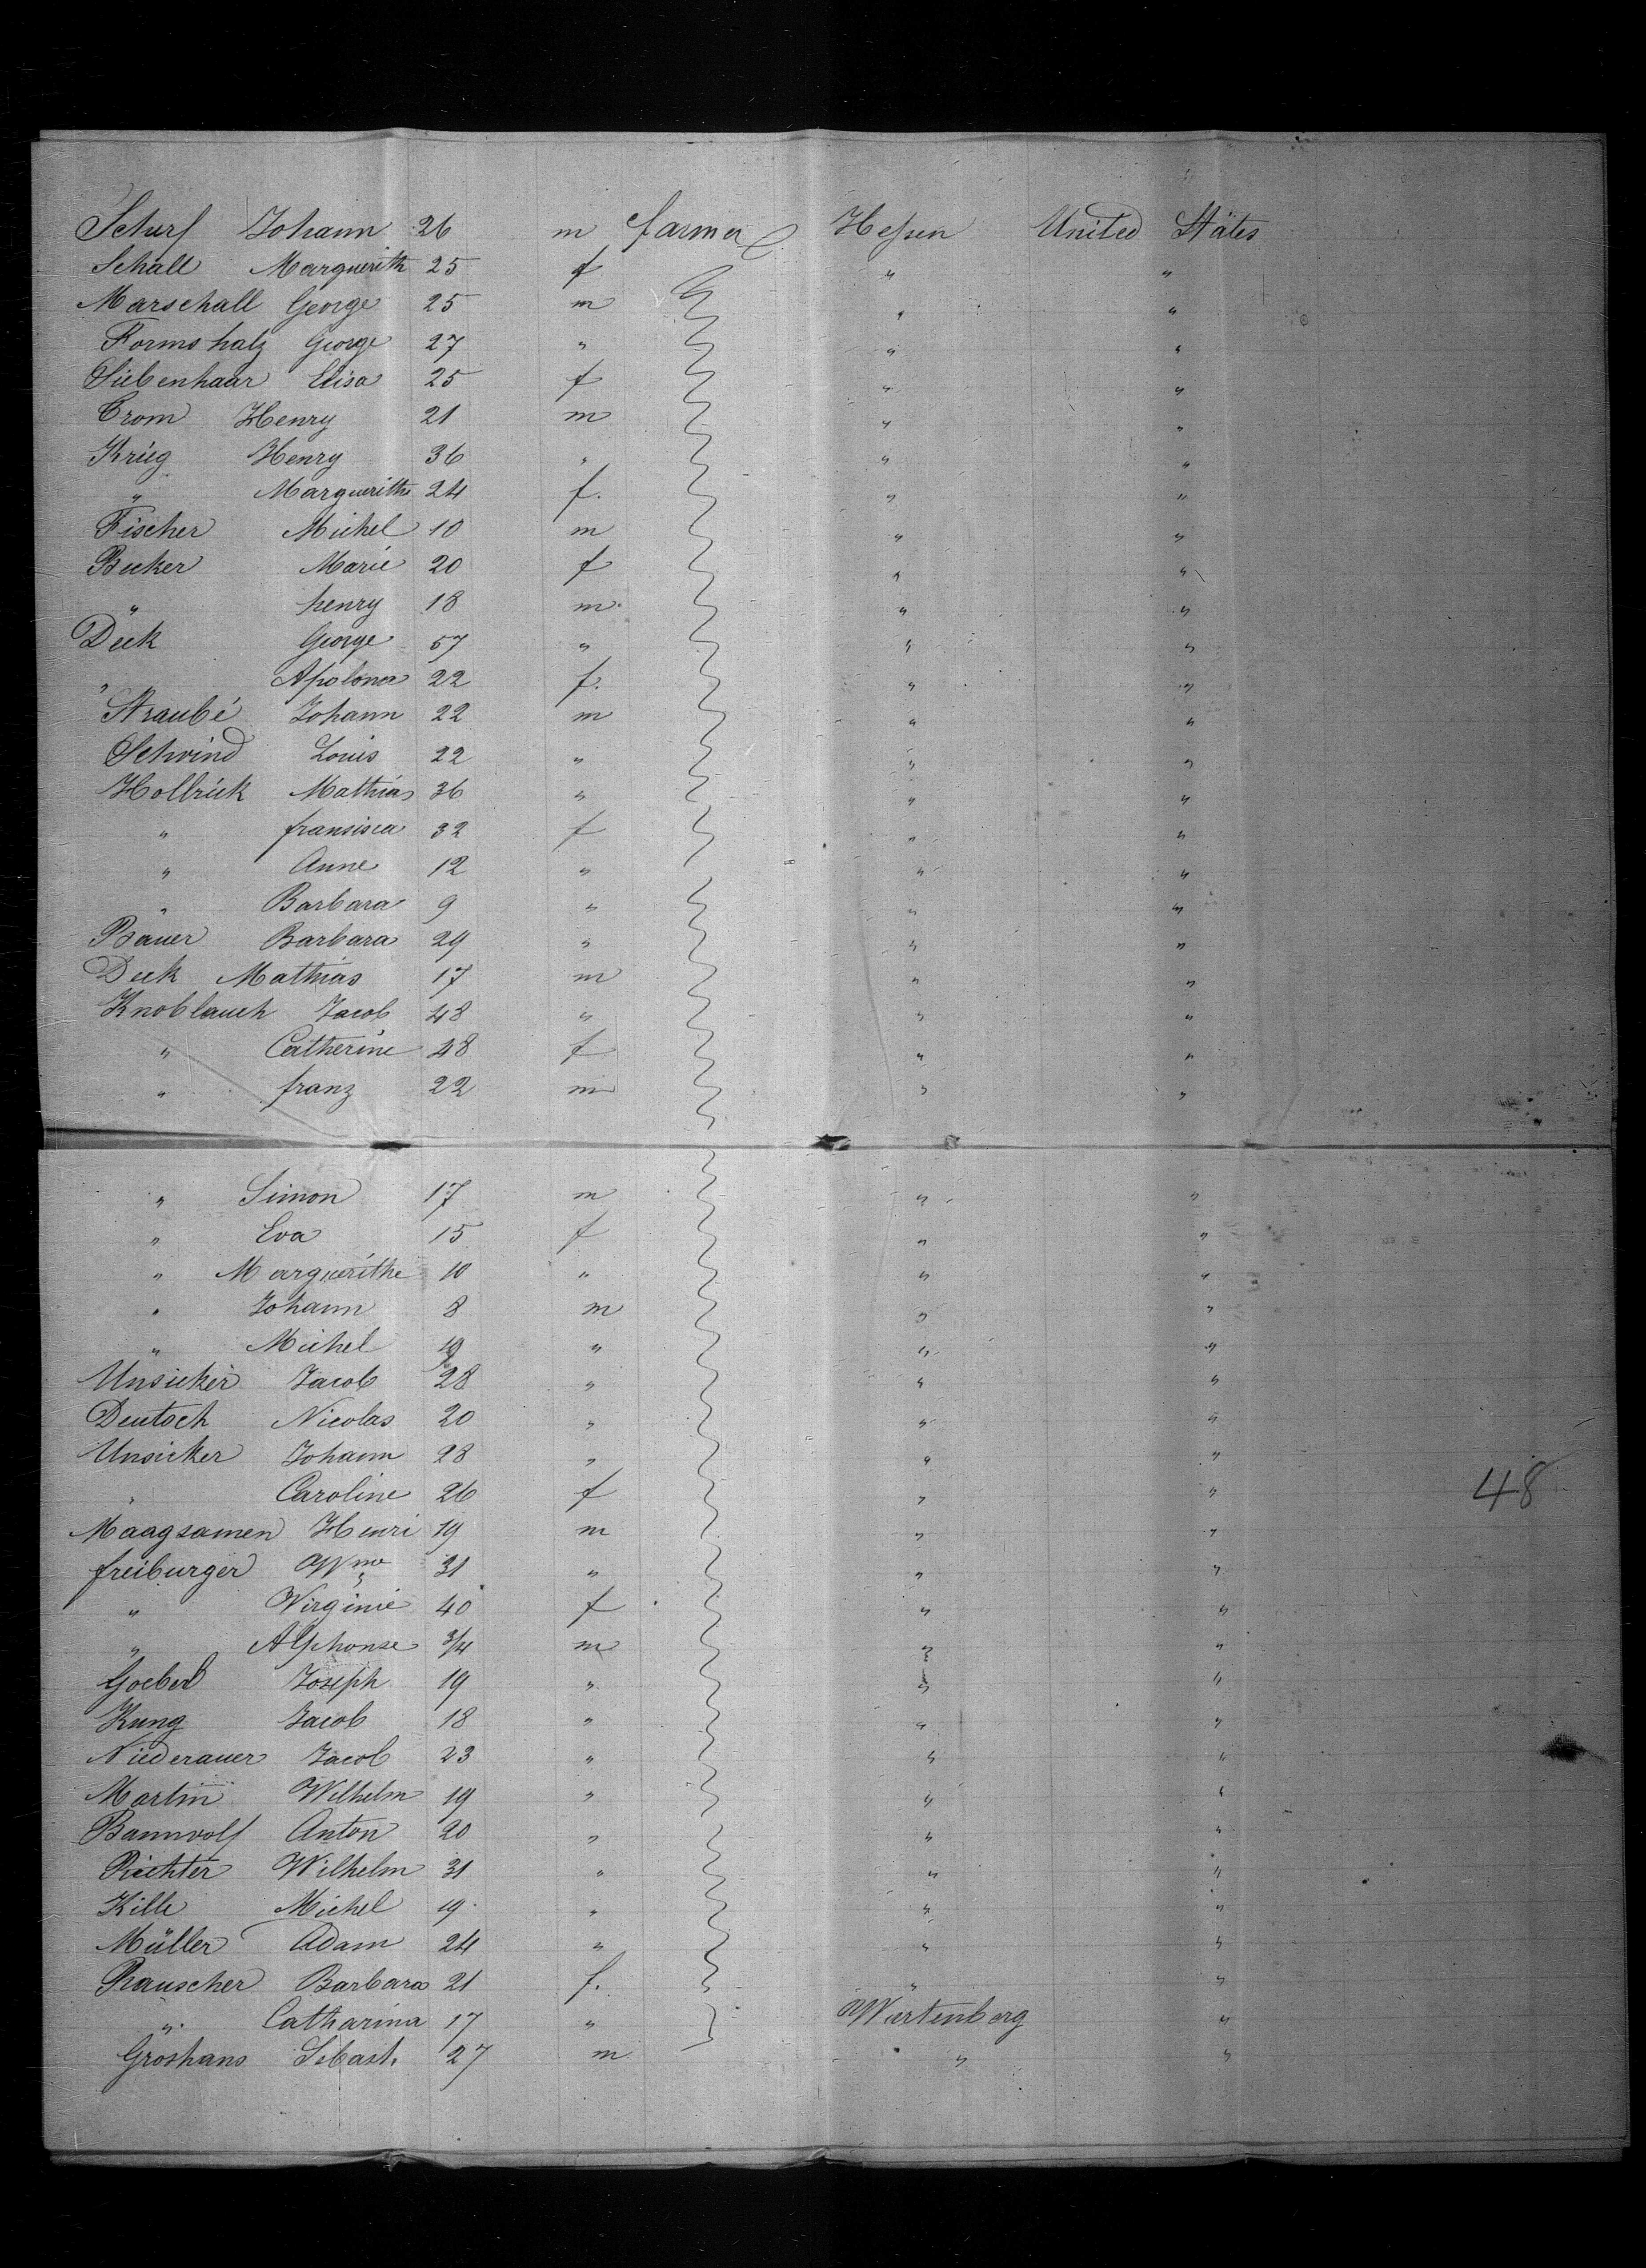 Scharf Johann 26 m farmer Hessen United States
Schall Marguerith 25 f " "
Marschall George 25 m " "
Formshalz George 27 " " "
Siebenhaar Elisa 25 f " "
Crom Henry 21 m " "
Krieg Henry 36 " " "
" Marguerithe 24 f. " "
Fischer Michel 10 m " "
Becker Marie 20 f " "
" henry 18 m. " "
Deck George 57 " " "
" Apolona 22 f. " "
Straubé Johann 22 m " "
Schwind Louis 22 " " "
Hollrick Mathias 36 " " "
" fransisca 32 f " "
" Anne 12 " " "
" Barbara 9 " " "
Bauer Barbara 29 " " "
Deck Mathias 17 m " "
Knoblauch Jacob 48 " " "
" Catherine 48 f " "
" franz 22 m " "
" Simon 17 m " "
" Eva 15 f " "
" Marguerithe 10 " " "
" Johann 8 m " "
" Michel " " "
Unsicker Jacob 28 " " "
Deutsch Nicolas 20 " " "
Unsicker Johann 28 " " "
" Caroline 26 f " " 48
Maagsamen Henri 19 m " "
freiburger Wm 31 " " "
" Virginie 40 f " "
" Alphonse 3/4 m " "
Goebel Joseph 19 " " "
Kung Jacob 18 " " "
Niederauer Jacob 23 " " "
Martin Wilhelm 19 " " "
Bannwolf Anton 20 " " "
Richter Wilhelm 31 " " "
Kille Michel 19 " " "
Müller Adam 24 " " "
Rauscher Barbara 21 f. " "
" Catharina 17 " Würtenberg "
Groshans Sebast. 27 m " "